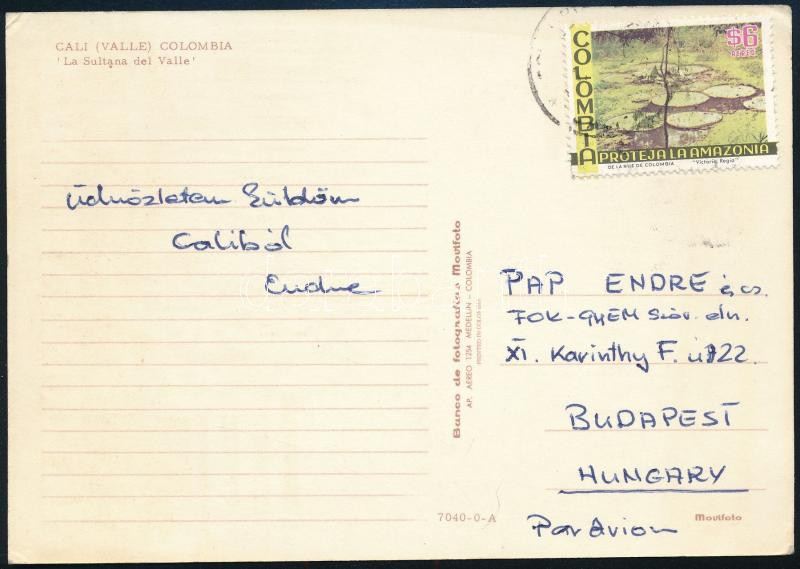 CALI (VALLE) COLOMBIA
'La Sultana del Valle'
COLOMBIA
$6
AEREO
PROTEJA LA AMAZONIA
DE LA SIE DE COLOMBIA "Victoria Regia"
Üdvözletem küldöm
Caliból
Endre
Banco de fotografias Movifoto
AP. AEREO 1254 MEDELLIN - COLOMBIA
PAP ENDRE és cs.
FŐK-GYÉM Szöv. eln.
XI. Karinthy F. u 22.
BUDAPEST
HUNGARY
Par Avion
7040-0-A
Movifoto